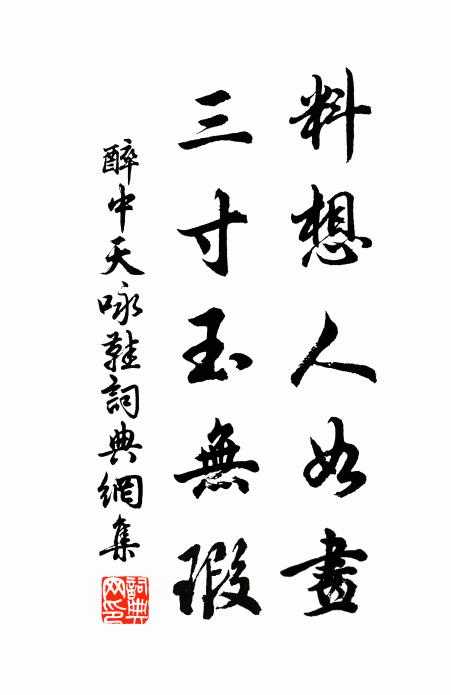 料想人如畫
三寸玉無瑕
醉中天咏鞋詞典網集
詞典網印